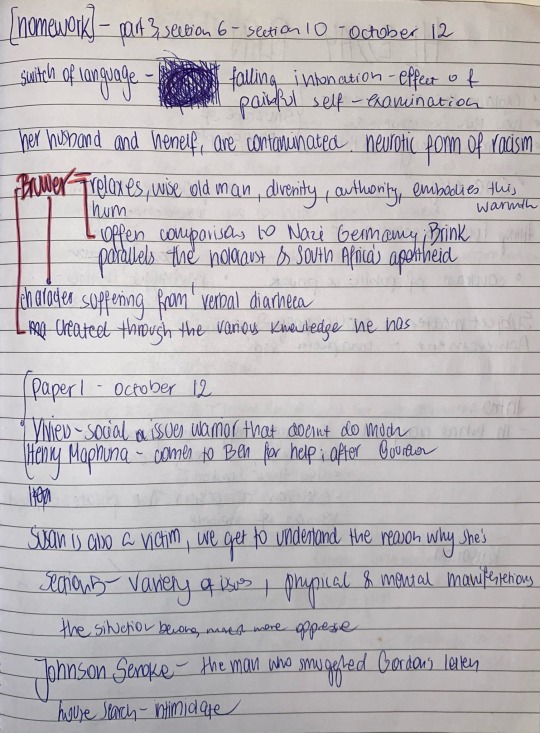 [homework] - part 3, section 6 - section 10 - october 12
switch of language - falling intonation - effect of
painful self - examination
her husband and herself, are contaminated neurotic form of racism
Bruwer - relaxes, wise old man, divenity, authority, embodies this
hum warmth
often comparisons to Nazi Germany; Brink
parallels the holocaust & South Africa's apartheid
character suffering from 'verbal diarhea
created through the various knowledge he has
Paper 1 - october 12
Viviers - social issues warrior that doesnt do much
Henry Maphuna - comes to Ben for help; after
Susan is also a victim, we get to understand the reason why she's
Section 5 - variety of , physical & mental manifestations
the situation more
Johnson Seroke - the man who smuggled Gordon's letters
house search - intimidate